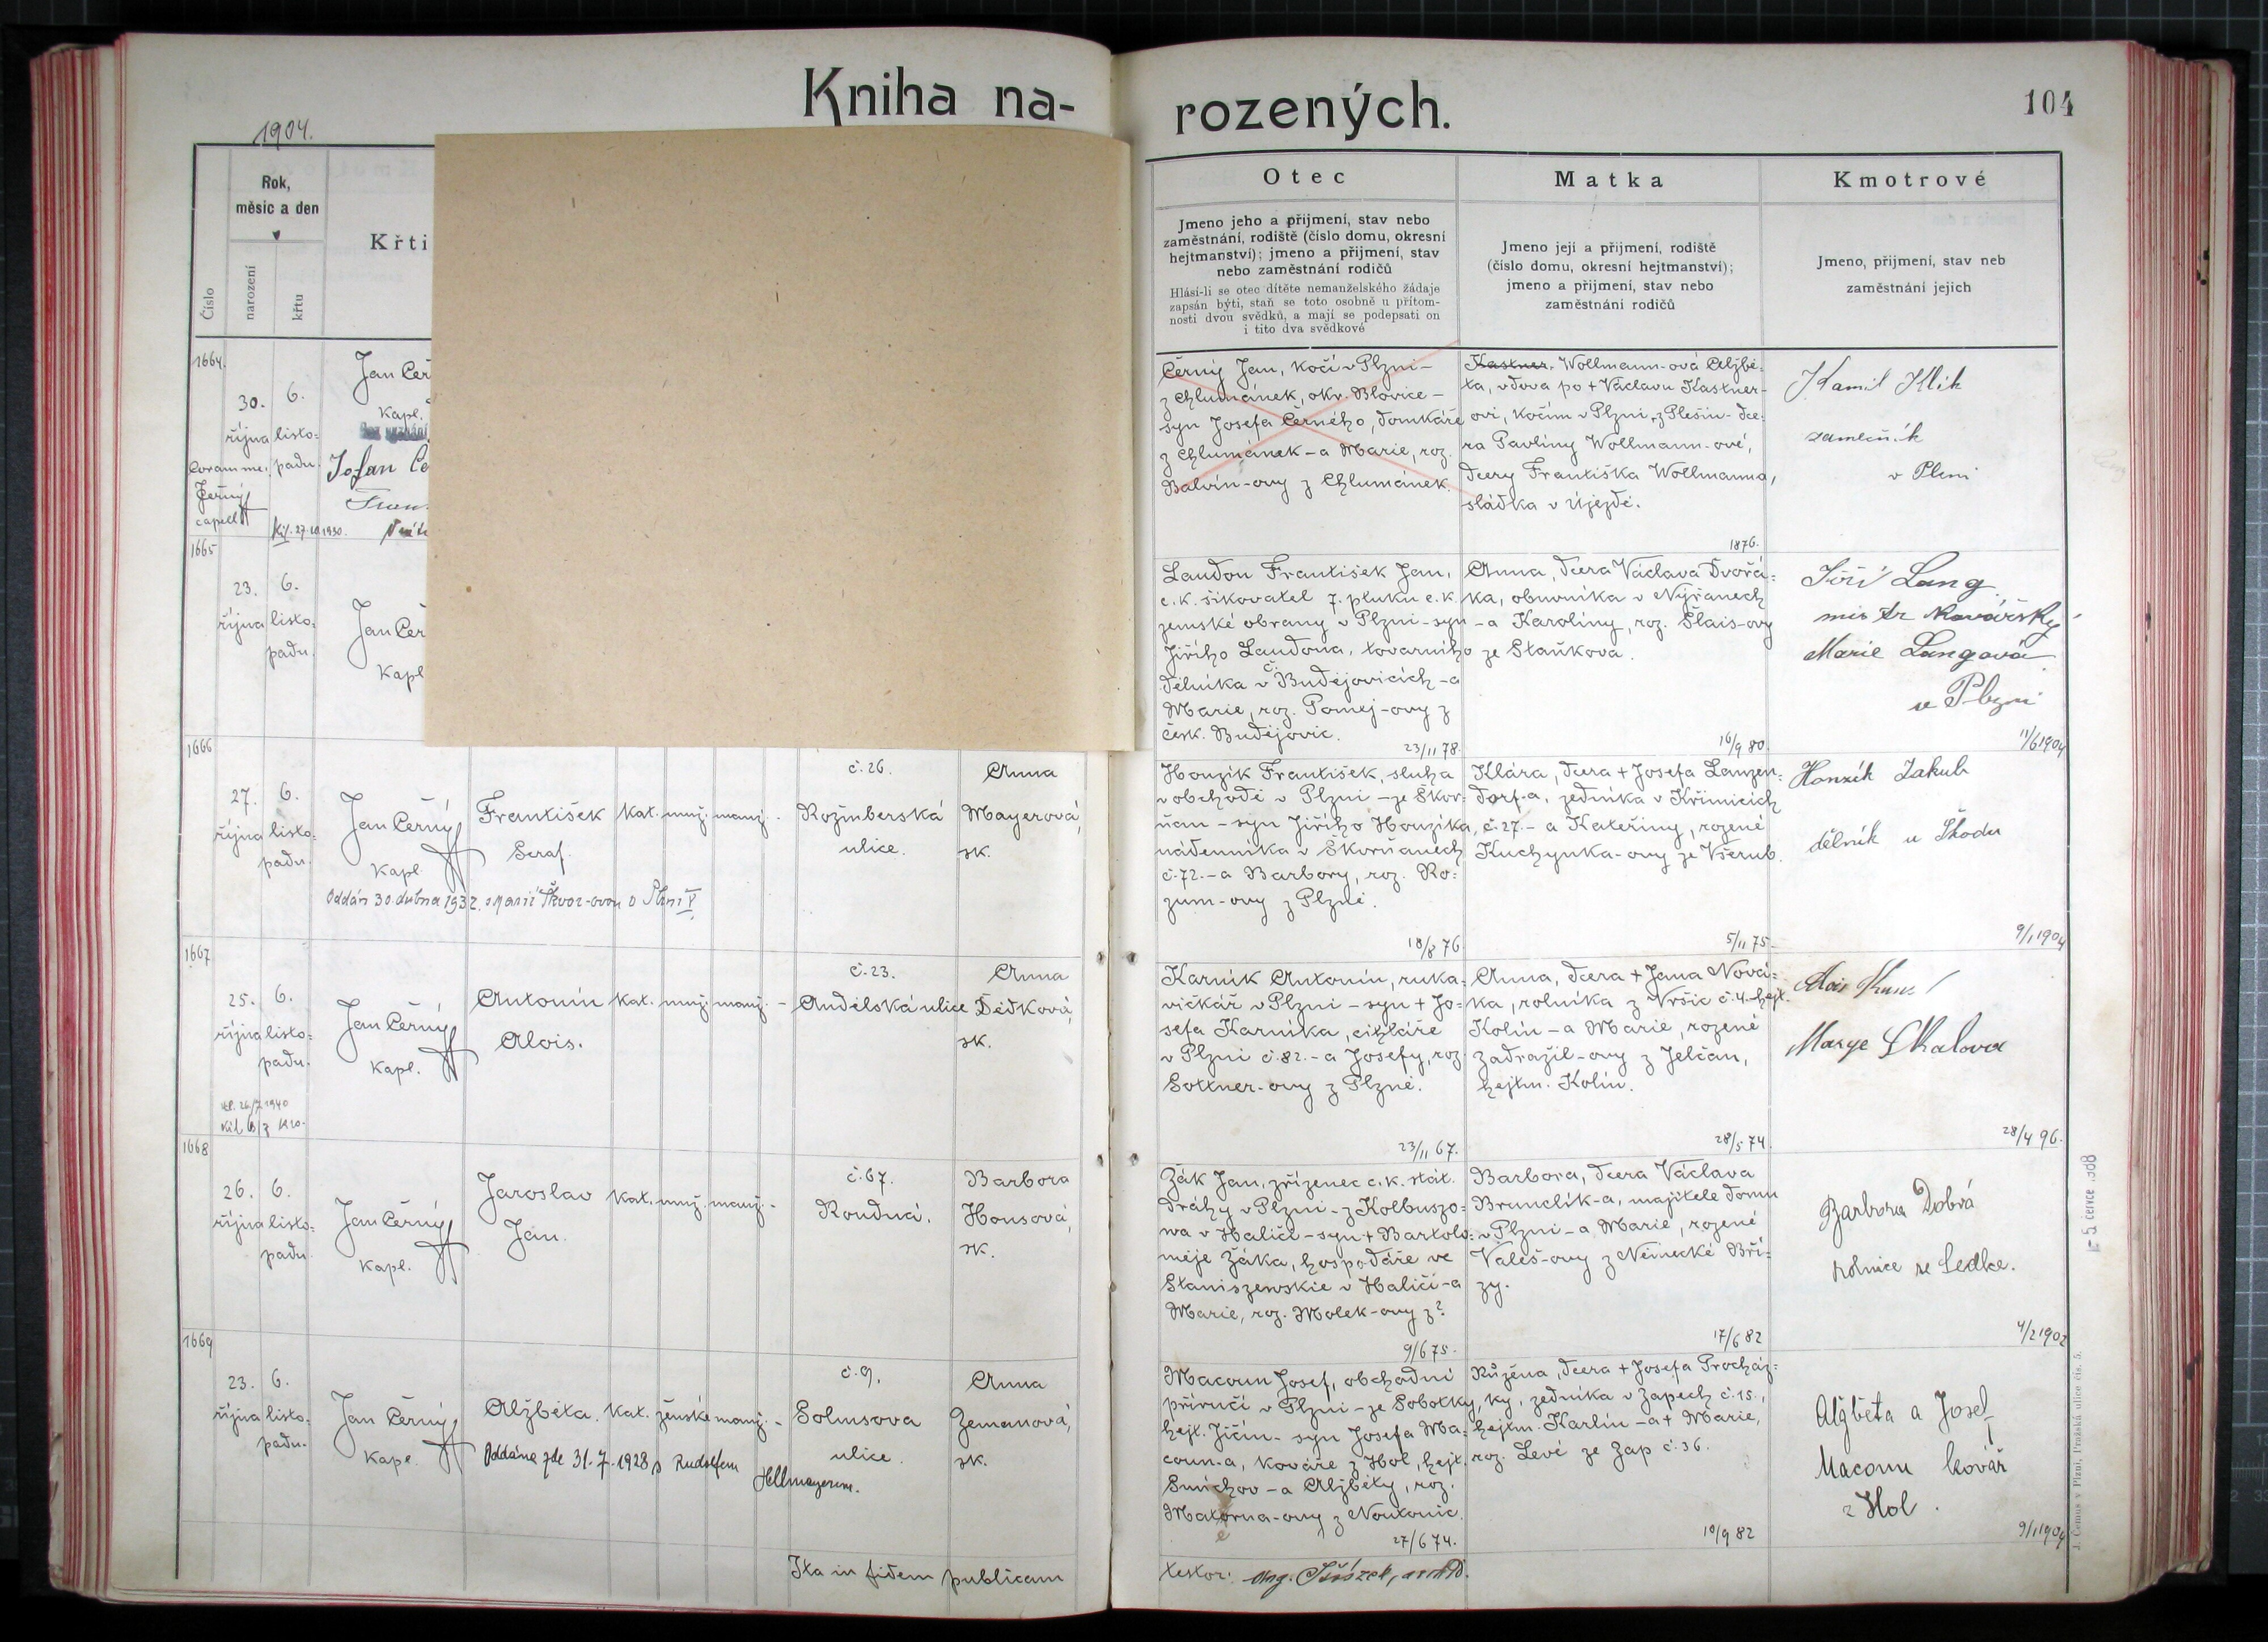 Kniha na-
rozených.
104
1904.
Číslo
Rok,
měsíc a den
narození
křtu
Křti
Otec
Jmeno jeho a přijmení, stav nebo
zaměstnání, rodiště (číslo domu, okresní
hejtmanství); jmeno a přijmení, stav
nebo zaměstnání rodičů
Hlásí-li se otec dítěte nemanželského žádaje
zapsán býti, staň se toto osobně u přítom-
nosti dvou svědků, a mají se podepsati on
i tito dva svědkové
Matka
Jmeno její a přijmení, rodiště
(číslo domu, okresní hejtmanství);
jmeno a přijmení, stav nebo
zaměstnání rodičů
Kmotrové
Jmeno, přijmení, stav neb
zaměstnání jejich
1664.
30.
října
6.
listo-
padu.
Coram me:
Černý
capell.
27.10.1930.
Jan Čer
Kapl.
Johan Če
Černý Jan, kočí v Plzni –
z Chlumánek, okr. Blovice –
syn Josefa Černého, domkáře
z Chlumánek – a Marie, roz.
Balvín-ovy z Chlumánek.
Kastner. Wollmann-ová Alžbě-
ta, vdova po + Václavu Kastner-
ovi, kočím v Plzni, z Plešin - dce-
ra Pavlíny Wollmann-ové,
dcery Františka Wollmanna,
sládka v Újezdě.
1876.
Kamil Klik
zámečník
v Plzni
1665
23.
října
6.
listo-
padu.
Jan Čer
Kapl
Laudon František Jan,
c. k. šikovatel 7. pluku c. k.
zemské obrany v Plzni – syn
Jiřího Laudona, továrního
dělníka v Č. Budějovicích – a
Marie, roz. Pomej-ovy z
česk. Budějovic.
23/11 78.
Anna, dcera Václava Dvořá-
ka, obuvníka v Nýřanech
– a Karolíny, roz. Šlais-ovy
ze Staňkova.
16/9 80.
Jiří Lang
mistr kovářský
Marie Langová
v Plzni
11/6 1904
1666
27.
října
6.
listo-
padu.
Jan Černý
Kapl
František
Seraf.
kat. muž. manž. -
č. 26.
Rožmberská
ulice.
Anna
Mayerová,
zk.
Oddán 30. dubna 1932. s Marií Škvor-ovou v Plzni V.
Houzík František, sluha
v obchodě v Plzni – ze Škvr-
ňan – syn Jiřího Houzíka,
nádenníka v Škvrňanech
č. 72. – a Barbory, roz. Ro-
zum-ovy z Plzně.
18/8 76
Klára, dcera + Josefa Lanzen-
dorf-a, zedníka v Křimicích
č. 27. – a Kateřiny, rozené
Kuchynka-ovy ze Všerub.
5/11 75.
Honzík Jakub
dělník u Škodu
9/1 1904
1667
25.
října
6.
listo-
padu.
Jan Černý
Kapl.
Antonín
Alois.
kat. muž. manž. –
č. 23.
Andělská ulice
Anna
Dědková,
zk.
Karník Antonín, ruka-
vičkář v Plzni – syn + Jo-
sefa Karníka, cihláře
v Plzni č. 82. – a Josefy, roz.
Sottner-ovy z Plzně.
23/11 67.
Anna, dcera + Jana Nová-
ka, rolníka z Vršic č. 4. hejt.
Kolín – a Marie, rozené
Zadražil-ovy z Jelčan,
hejtm. Kolín.
28/5 74.
Marye Skalova
28/4 96.
1668
26.
října
6.
listo-
padu.
Jan Černý
Kapl.
Jaroslav
Jan.
kat. muž. manž. -
č. 67.
Roudná.
Barbora
Housová,
zk.
Žák Jan, zřízenec c. k. stát.
dráhy v Plzni – z Kolbuszo-
wa v Haliči – syn + Bartolo-
měje Žáka, hospodáře ve
Staniszewskie v Haliči – a
Marie, roz. Molek-ovy z?
9/6 75.
Barbora, dcera Václava
Brunclík-a, majitele domu
v Plzni – a Marie, rozené
Valeš-ovy z Německé Bří-
zy.
17/6 82
Barbora Dobrá
rolnice ze Sedlce.
4/2 1902
1669
23.
října
6.
listo-
padu.
Jan Černý
Kapl.
Alžběta.
kat. ženské manž. -
č. 9.
Solmsova
ulice.
Anna
Zemanová,
zk.
Oddána zde 31.7.1928 s Rudolfem
Hellmayerem.
Macoun Josef, obchodní
příručí v Plzni – ze Sobotky,
hejt. Jičín – syn Josefa Ma-
coun-a, kováře z Hol, hejt.
Smíchov – a Alžběty, roz.
Matorna-ovy z Noutonic.
27/6 74.
Růžena, dcera + Josefa Procház-
ky, zedníka v Zapech č. 15.,
hejtm. Karlín – a + Marie,
roz. Levé ze Zap č. 36.
10/9 82
Alžběta a Josef
Macoun kovář
z Hol.
9/1 1904
Ita in fidem publicam
testor:
J. Čenus v Plzni, Pražská ulice čís. 5.